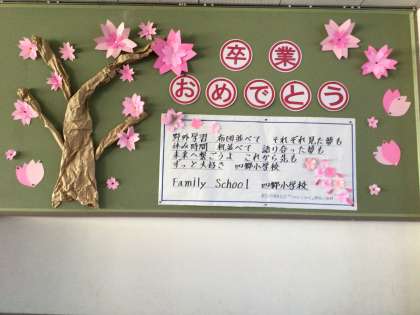 卒業
おめでとう
野外学習 布団並べて それぞれ見た夢も
休み時間 机並べて 語り合った夢も
未来へ繋ごうよ これから先も
ずっと大好き 四郷小学校
Family School 四郷小学校